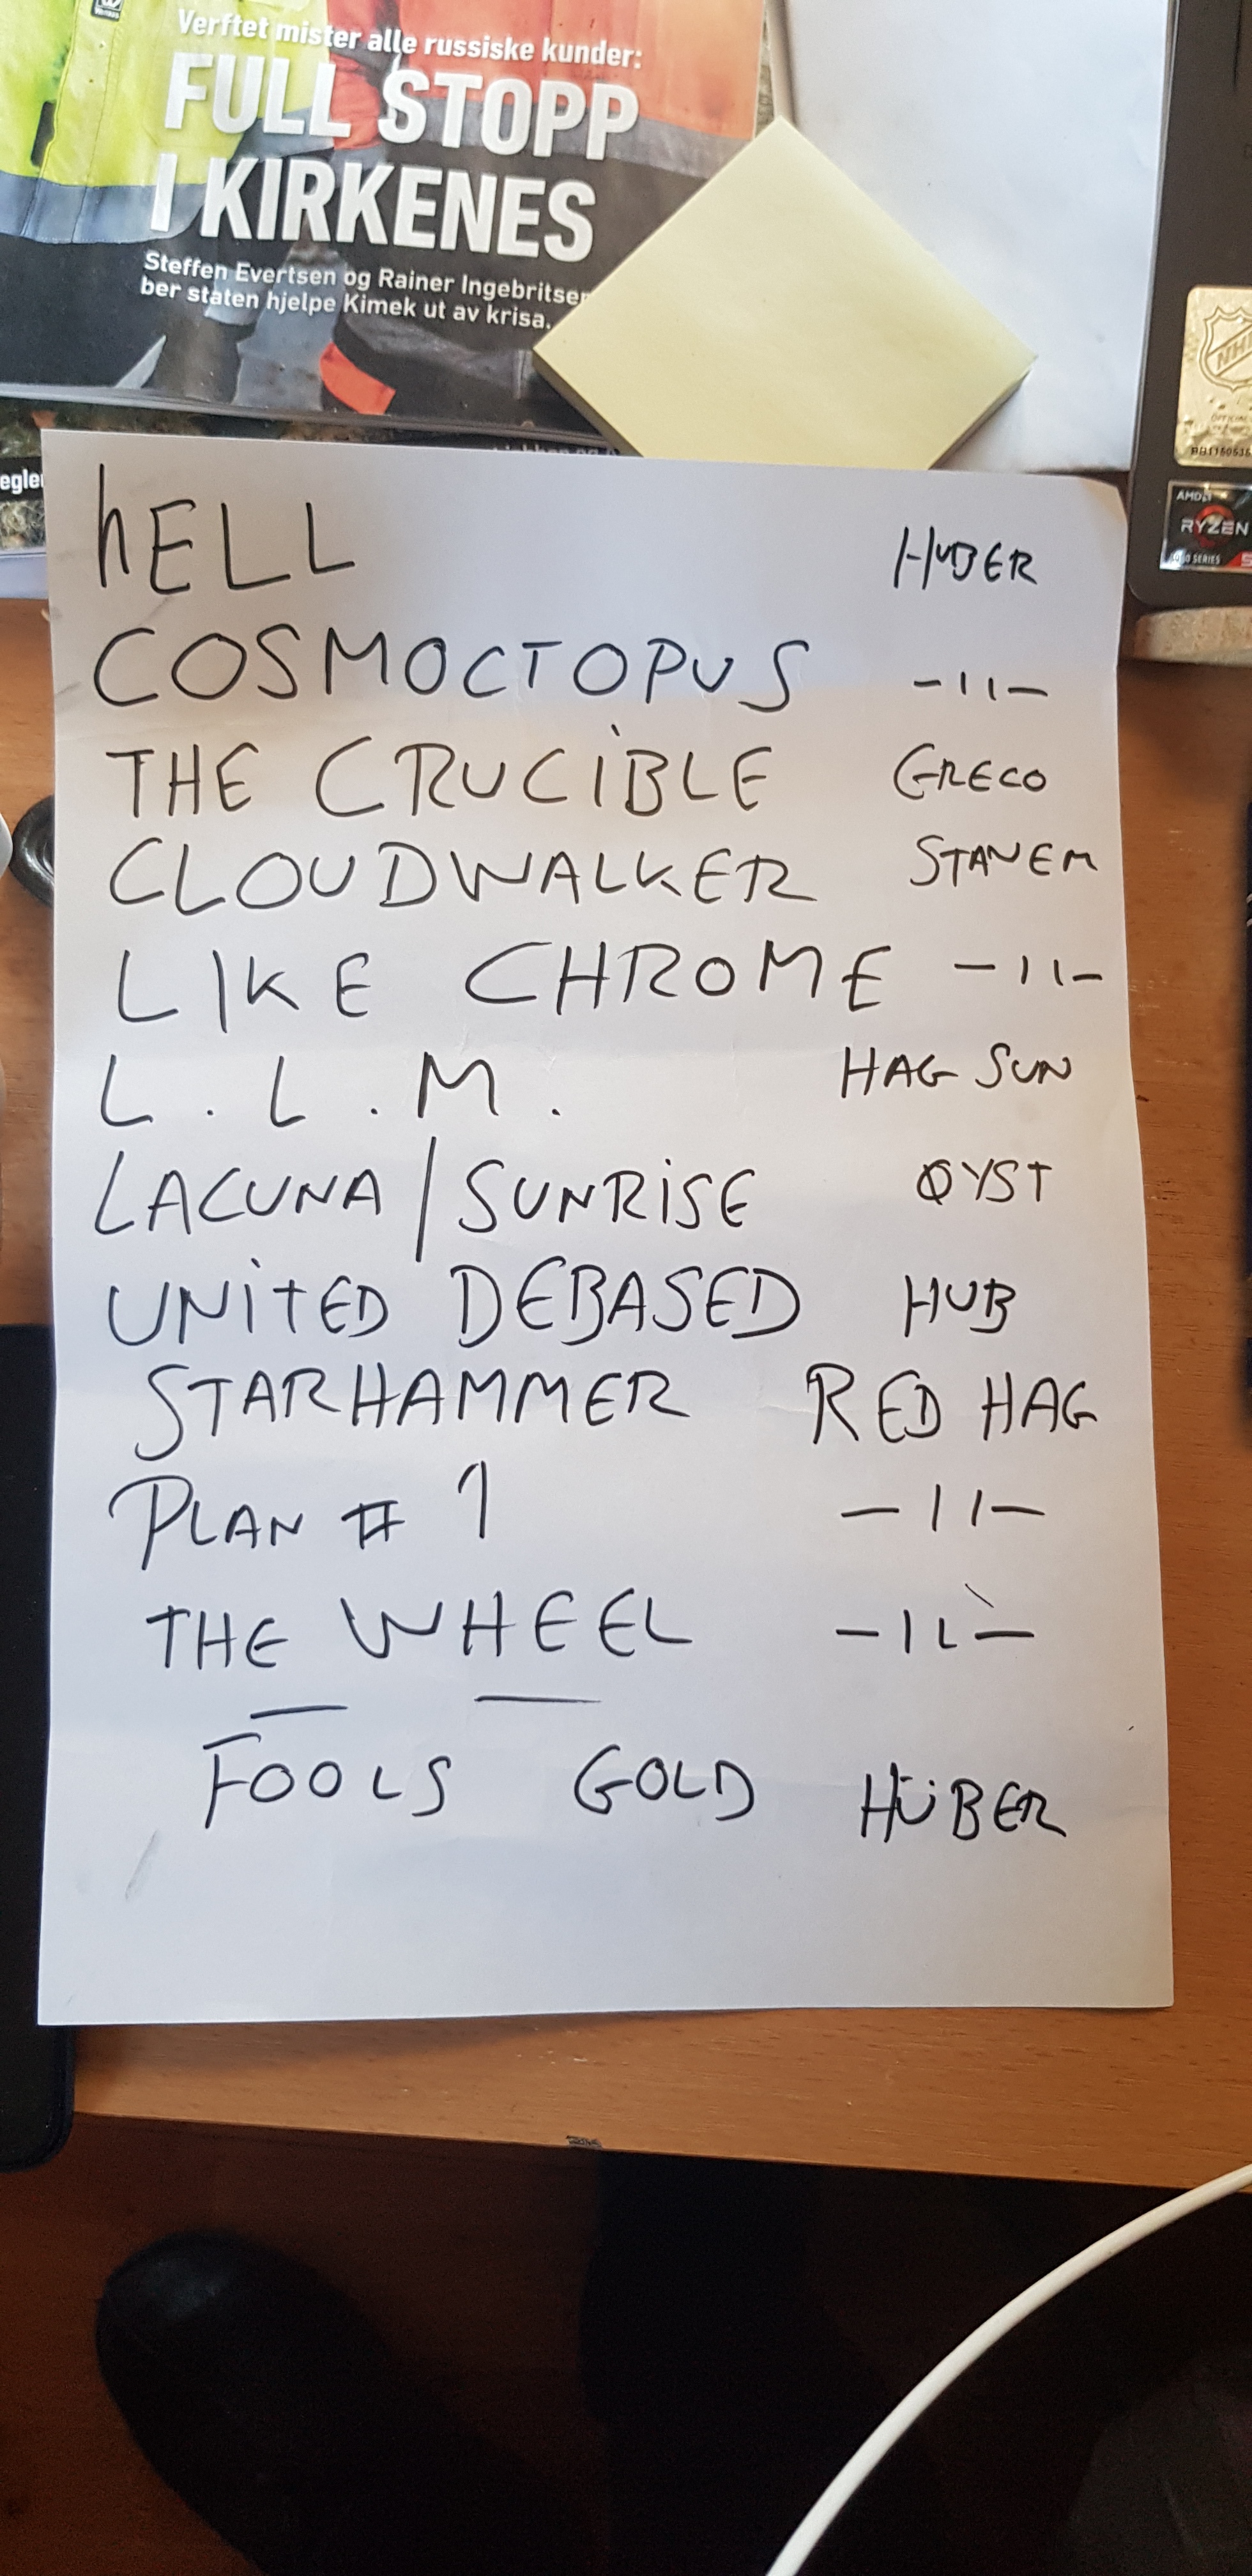 Verftet mister alle russiske kunder:
FULL STOPP
I KIRKENES
Steffen Evertsen og Rainer Ingebritsen
ber staten hjelpe Kimek ut av krisa.
NHL
AMD
RYZEN
SERIES
hELL HUBER
COSMOCTOPUS -11-
THE CRUCiBLE GRECO
CLOUDWALKER STANEM
LIKE CHROME -11-
L.L.M. HAG SUN
LACUNA/SUNRiSE ØYST
UNiTED DEBASED HUB
STARHAMMER RED HAG
PLAN # 1 -11-
THE WHEEL -11-
FOOLS GOLD HÜBER